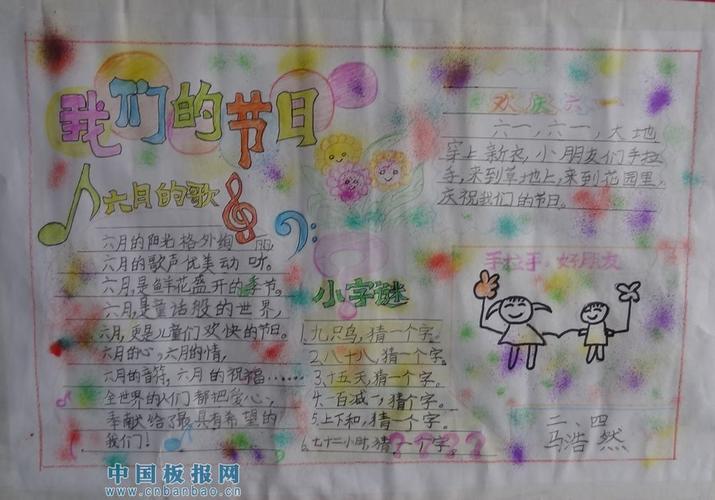 我们的节日
六月的歌
六月的阳光格外绚丽。
六月的歌声优美动听。
六月,是鲜花盛开的季节。
六月,是童话般的世界,
六月,更是儿童们欢快的节日。
六月的心,六月的情,
六月的音符,六月的祝福……
全世界的人们都把爱心,
奉献给了最具有希望的
我们!
小字谜
1.九只鸟,猜一个字。
2.八十八,猜一个字。
3.十五天,猜一个字。
4.一百减一,猜一个字。
5.上下和,猜一个字。
6.七十二小时,猜一个字。
????
欢庆六一
六一,六一,大地
穿上新衣,小朋友们手拉
手,来到草地上,来到花园里,
庆祝我们的节日。
手拉手,好朋友
二、四
马浩然
中国板报网
www.cnbanbao.cn